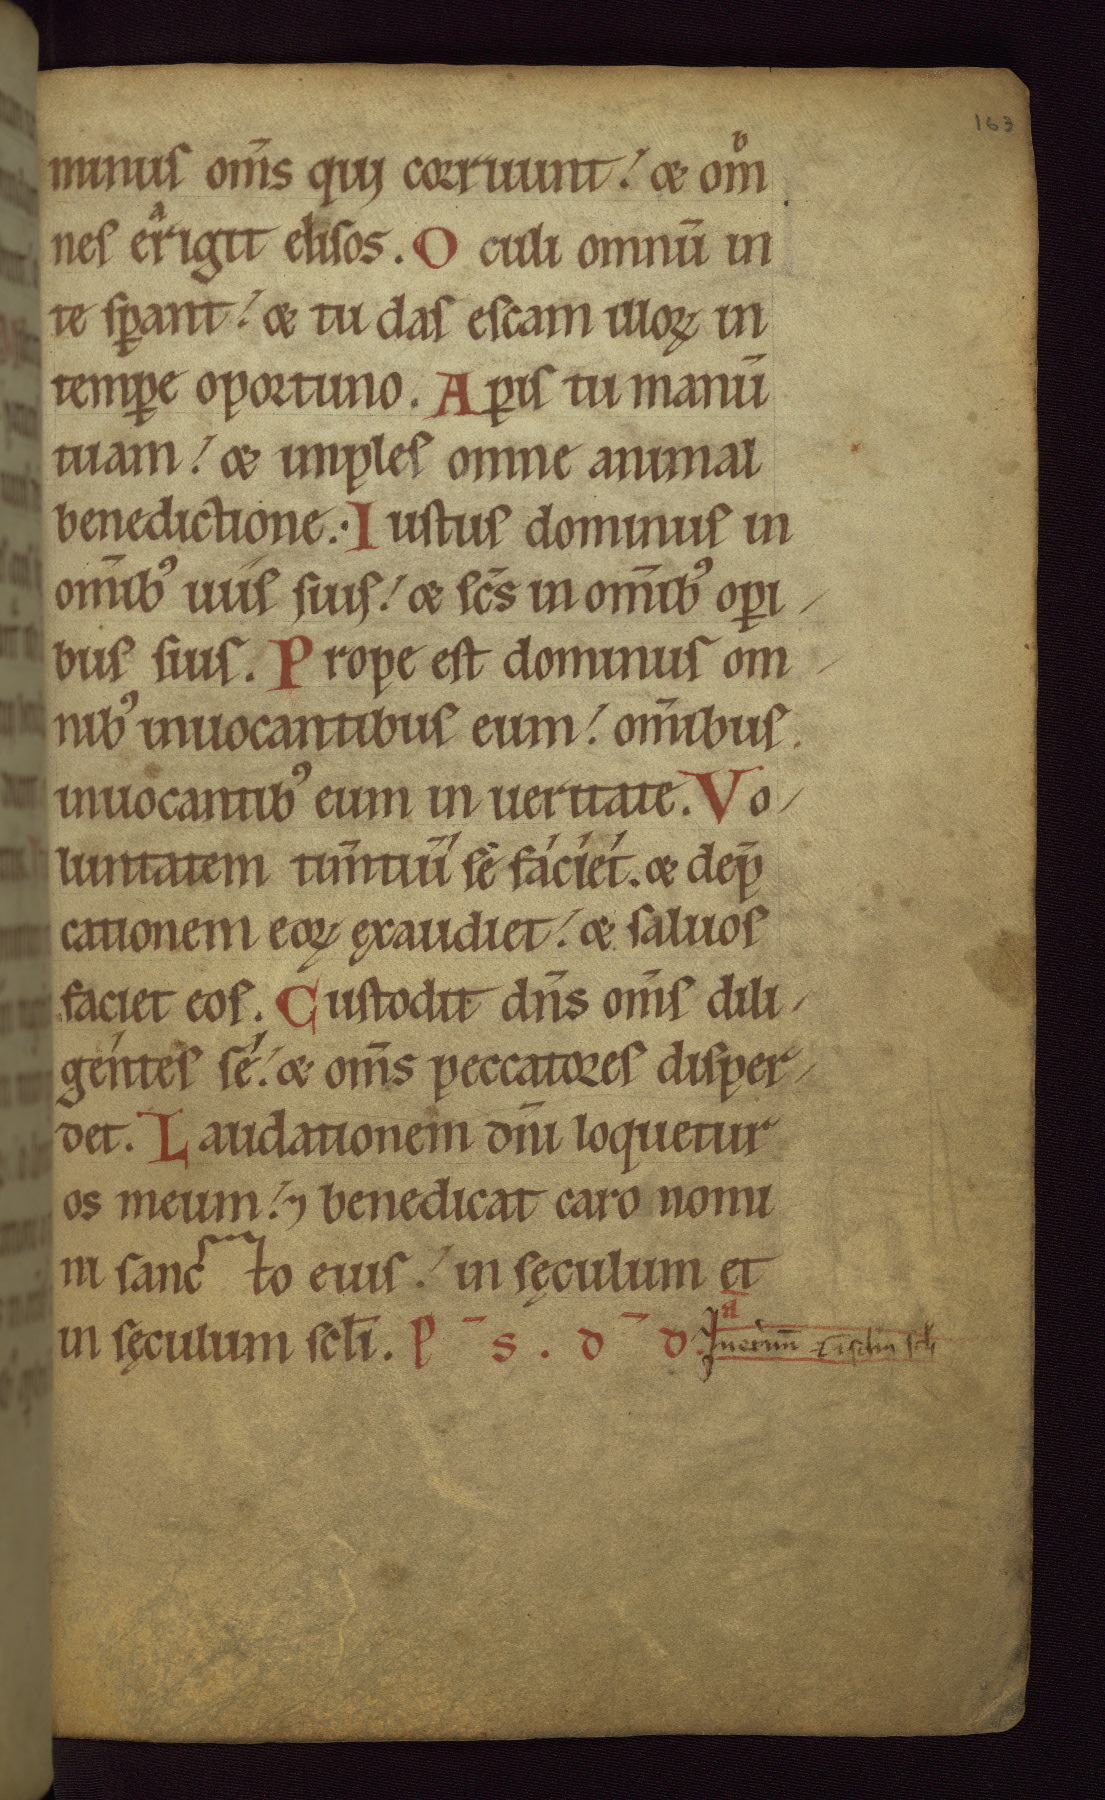 163
minus om̅s qui corruunt! & om
nes erigit elisos. O culi omniū in
te sp̱ant! & tu das escam illoꝝ in
temꝑe oportuno. A ꝑis tu manū
tuam! & imples omne animal
benedictione. I ustus dominus in
om̅ibꝰ uiis suis! & sc̅s in om̅ibꝰ oꝑi
bus suis. P rope est dominus om
nibꝰ inuocantibus eum! om̅ibus
inuocantibꝰ eum in ueritate. V o
luntatem tim̅tiū sē faciet. & dep̄
cationem eoꝝ exaudiet! & saluos
faciet eos. C ustodit dn̅s om̅s dili
gentes sē! & om̅s peccatores disper
det. L audationem dn̅i loquetur
os meum! ⁊ benedicat caro nomi
ni sanc to eius! in sęculum et
in sęculum scl̅i. P ̅ s. d ̅ d.